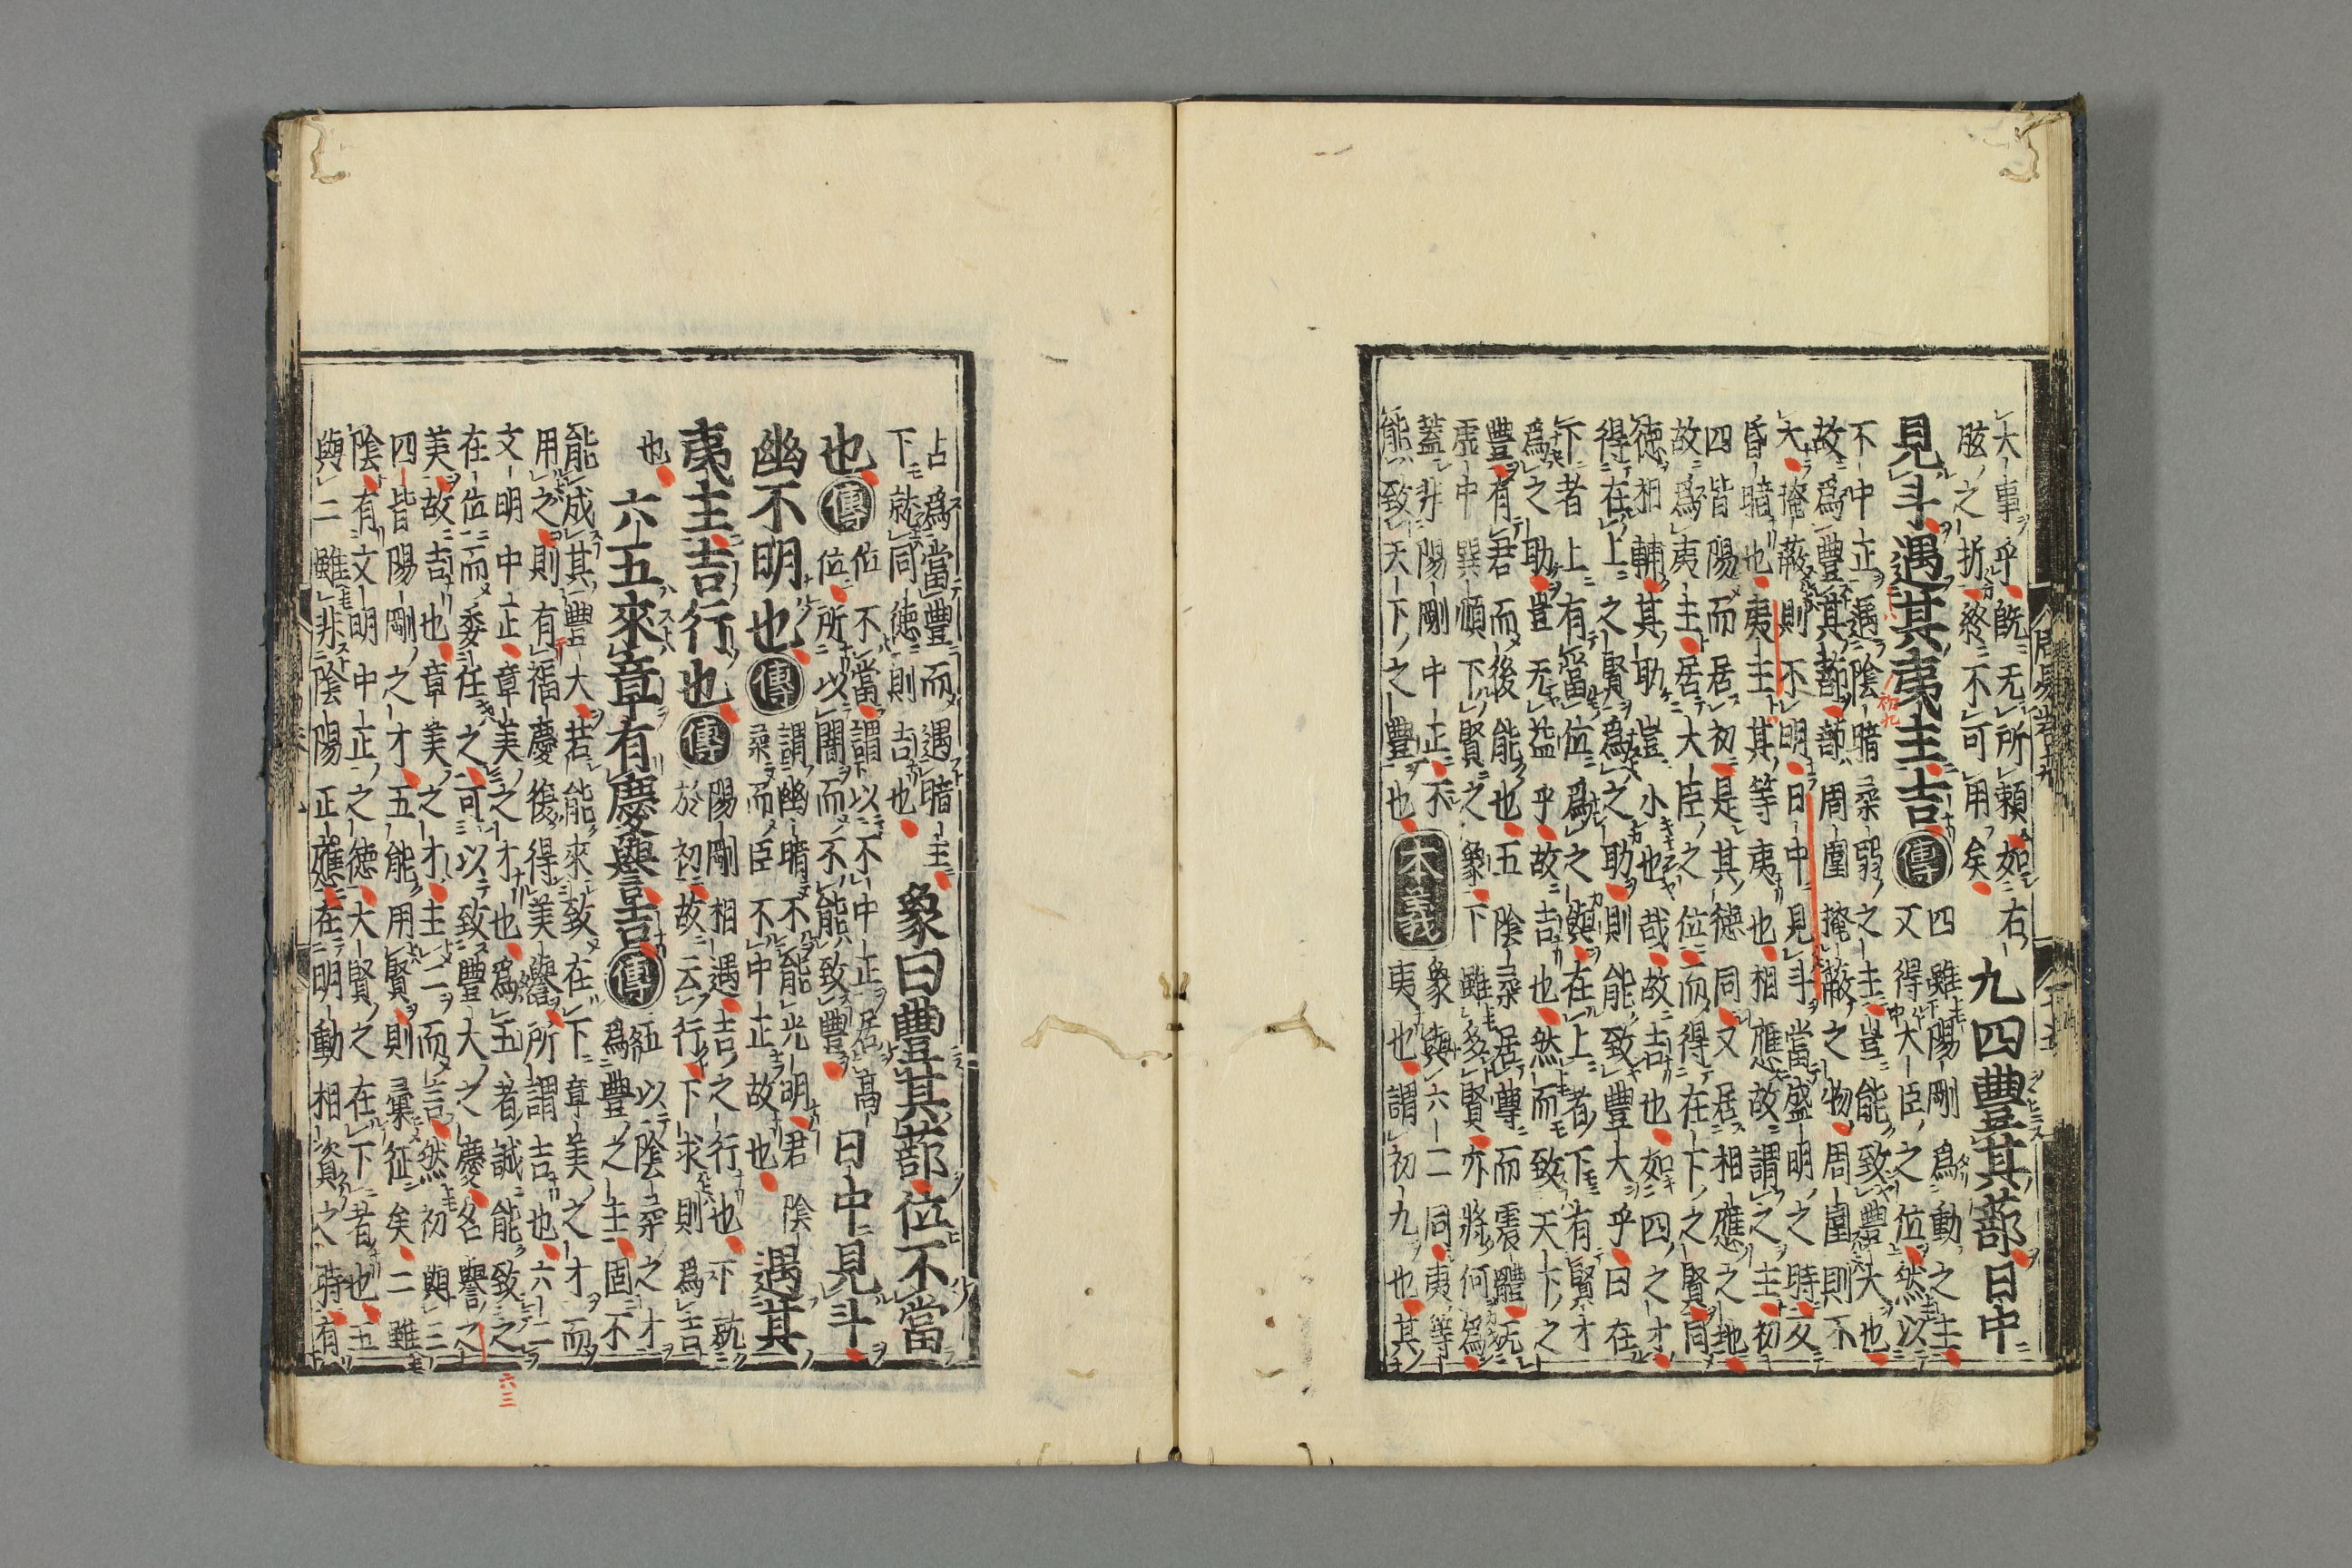 大事乎既无所賴如右
肱之折終不可用矣
九四豐其蔀日中
見斗遇其夷主吉
傳
四雖陽剛爲動之主
又得大臣之位然以
不中正遇陰暗柔弱之主豈能致豐大也
故爲豐其蔀蔀周圍掩蔽之物周圍則不
大掩蔽則不明日中見斗當盛明之時反
昏暗也夷主其等夷也相應故謂之主初
四皆陽而居初是其德同又居相應之地
故爲夷主居大臣之位而得在下之賢同
德相輔其助豈小也哉故吉也如四之才
得在上之賢爲之助則能致豐大乎曰在
下者上有當位爲之與在上者下有賢才
爲之助豈无益乎故吉也然而致天下之
豐有君而後能也五陰柔居尊而震體无
虛中巽順下賢之象下雖多賢亦將何爲
蓋非陽剛中正不
能致天下之豐也
本義
象與六二同夷等
夷也謂初九也其
占爲當豐而遇暗主
下就同德則吉也
象曰豐其蔀位不當
也
傳
位不當謂以不中正居高
位所以闇而不能致豐
日中見斗
幽不明也
傳
謂幽暗不能光明君陰
柔而臣不中正故也
遇其
夷主吉行也
傳
陽剛相遇吉之行也下就
於初故云行下求則爲吉
也
六五來章有慶譽吉
傳
五以陰柔之才
爲豐之主固不
能成其豐大若能來致在下章美之才而
用之則有福慶復得美譽所謂吉也六二
文明中正章美之才也爲五者誠能致之
在位而委任之可以致豐大之慶名譽之
美故吉也章美之才主二而言然初與三
四皆陽剛之才五能用賢則彙征矣二雖
陰有文明中正之德大賢之在下者也五
與二雖非陰陽正應在明動相資之時有
初九
六三